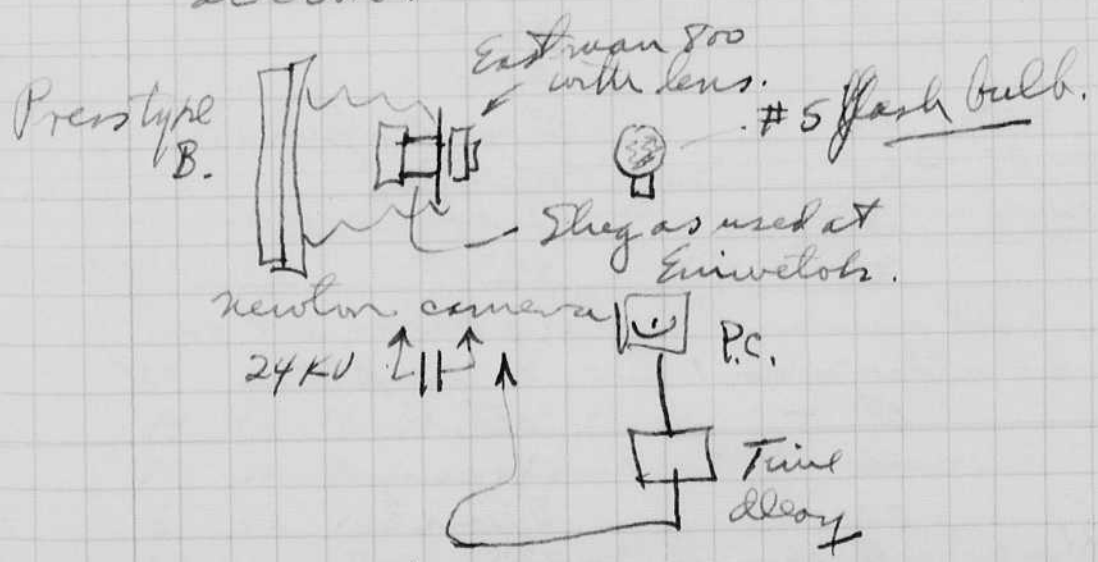 Eastman 800
with lens.
Press type
B.
#5 flash bulb.
Slug as used at
Eniwetok.
newton camera
P.C.
24 KV
Time
delay